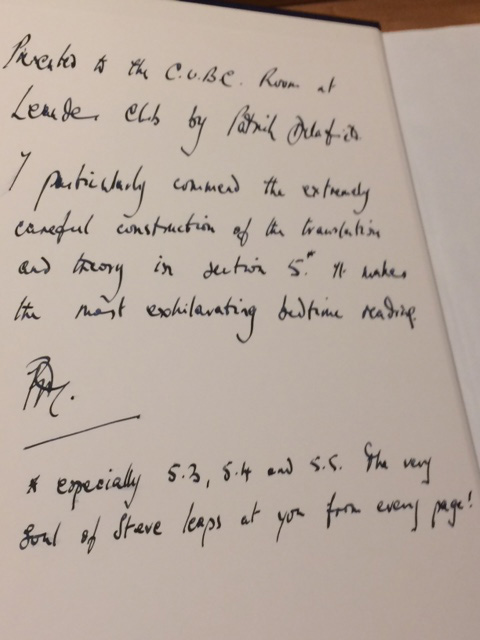 Presented to the C.U.B.C. Room at
Leander Club by Patrick Delafield.
I particularly commend the extremely
careful construction of the translation
and theory in section 5.* It makes
the most exhilarating bedtime reading.
* especially 5.3, 5.4 and 5.5. The very
Soul of Steve leaps at you from every page!